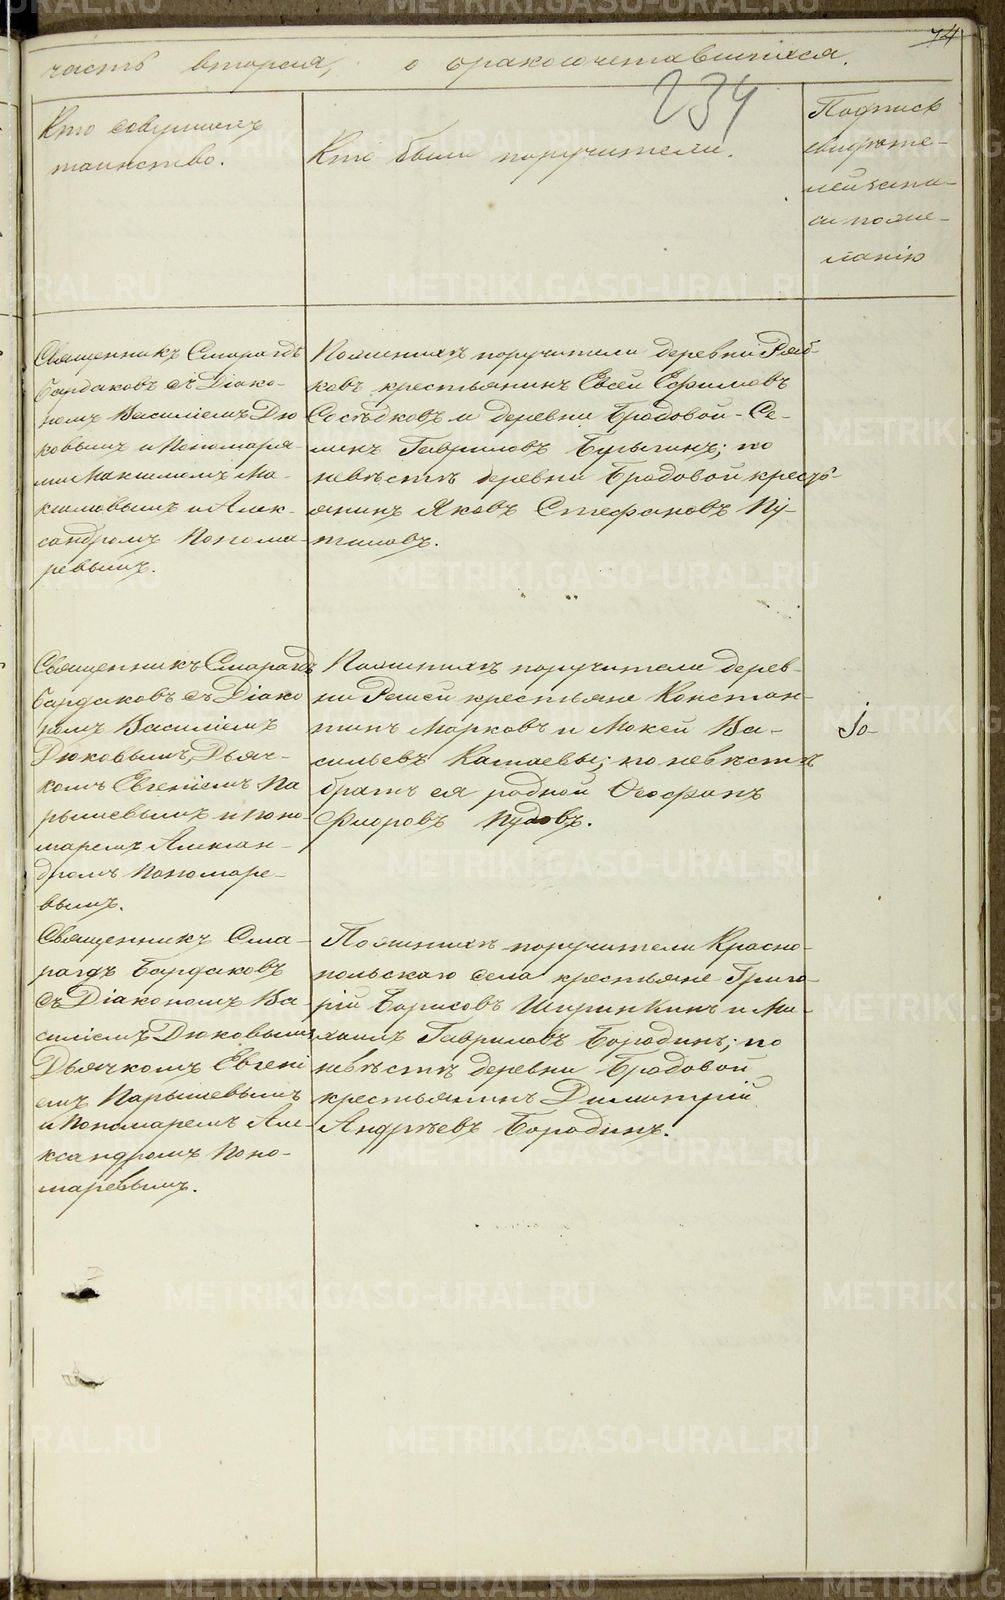 74
часть вторая, о бракосочетавшихся.
234
Кто совершалъ
таинство.
Кто были поручители.
Подпись
свидѣте-
лей запи-
си по же-
ланію
Священникъ Смарагдъ
Бардаковъ съ Діако-
номъ Василіемъ Дю
ковымъ и Пономаря-
ми Максимомъ Ма-
ксимовымъ и Алек-
сандромъ Понома-
ревымъ.
По женихѣ поручители деревни
ковъ крестьянинъ Евсей Ефимовъ
Сосѣдковъ и деревни Бродовой - Се-
менъ Гавриловъ Булыгинъ; по
невѣстѣ деревни Бродовой кресть-
янинъ Яковъ Стефановъ Пу-
тиловъ.
Священникъ Смарагдъ
Бардаковъ съ Діако
номъ Василіемъ
Дюковымъ, Дьяч-
комъ Евгеніемъ Па
рышевымъ и поно-
маремъ Алексан-
дромъ Пономаре-
вымъ.
По женихѣ поручители дерев-
ни Решей крестьяне Констан-
тинъ Марковъ и Мокей Ва-
сильевъ Катаевы; по невѣстѣ
братъ ея родной Ѳеофанъ
Фроловъ Пудовъ.
Священникъ Сма-
рагдъ Бардаковъ
съ Діакономъ Ва-
силіемъ Дюковымъ,
Дьячкомъ Евгені
емъ Парышевымъ
и Пономаремъ Але-
ксандромъ Поно-
маревымъ.
По женихѣ поручители Красно-
польскаго села крестьяне Григо-
рій Борисовъ Ширинкинъ и Ми-
хаилъ Гавриловъ Бородинъ; по
невѣстѣ деревни Бродовой
крестьянинъ Димитрій
Андрѣевъ Бородинъ.
METRIKI.GASO-URAL.RU